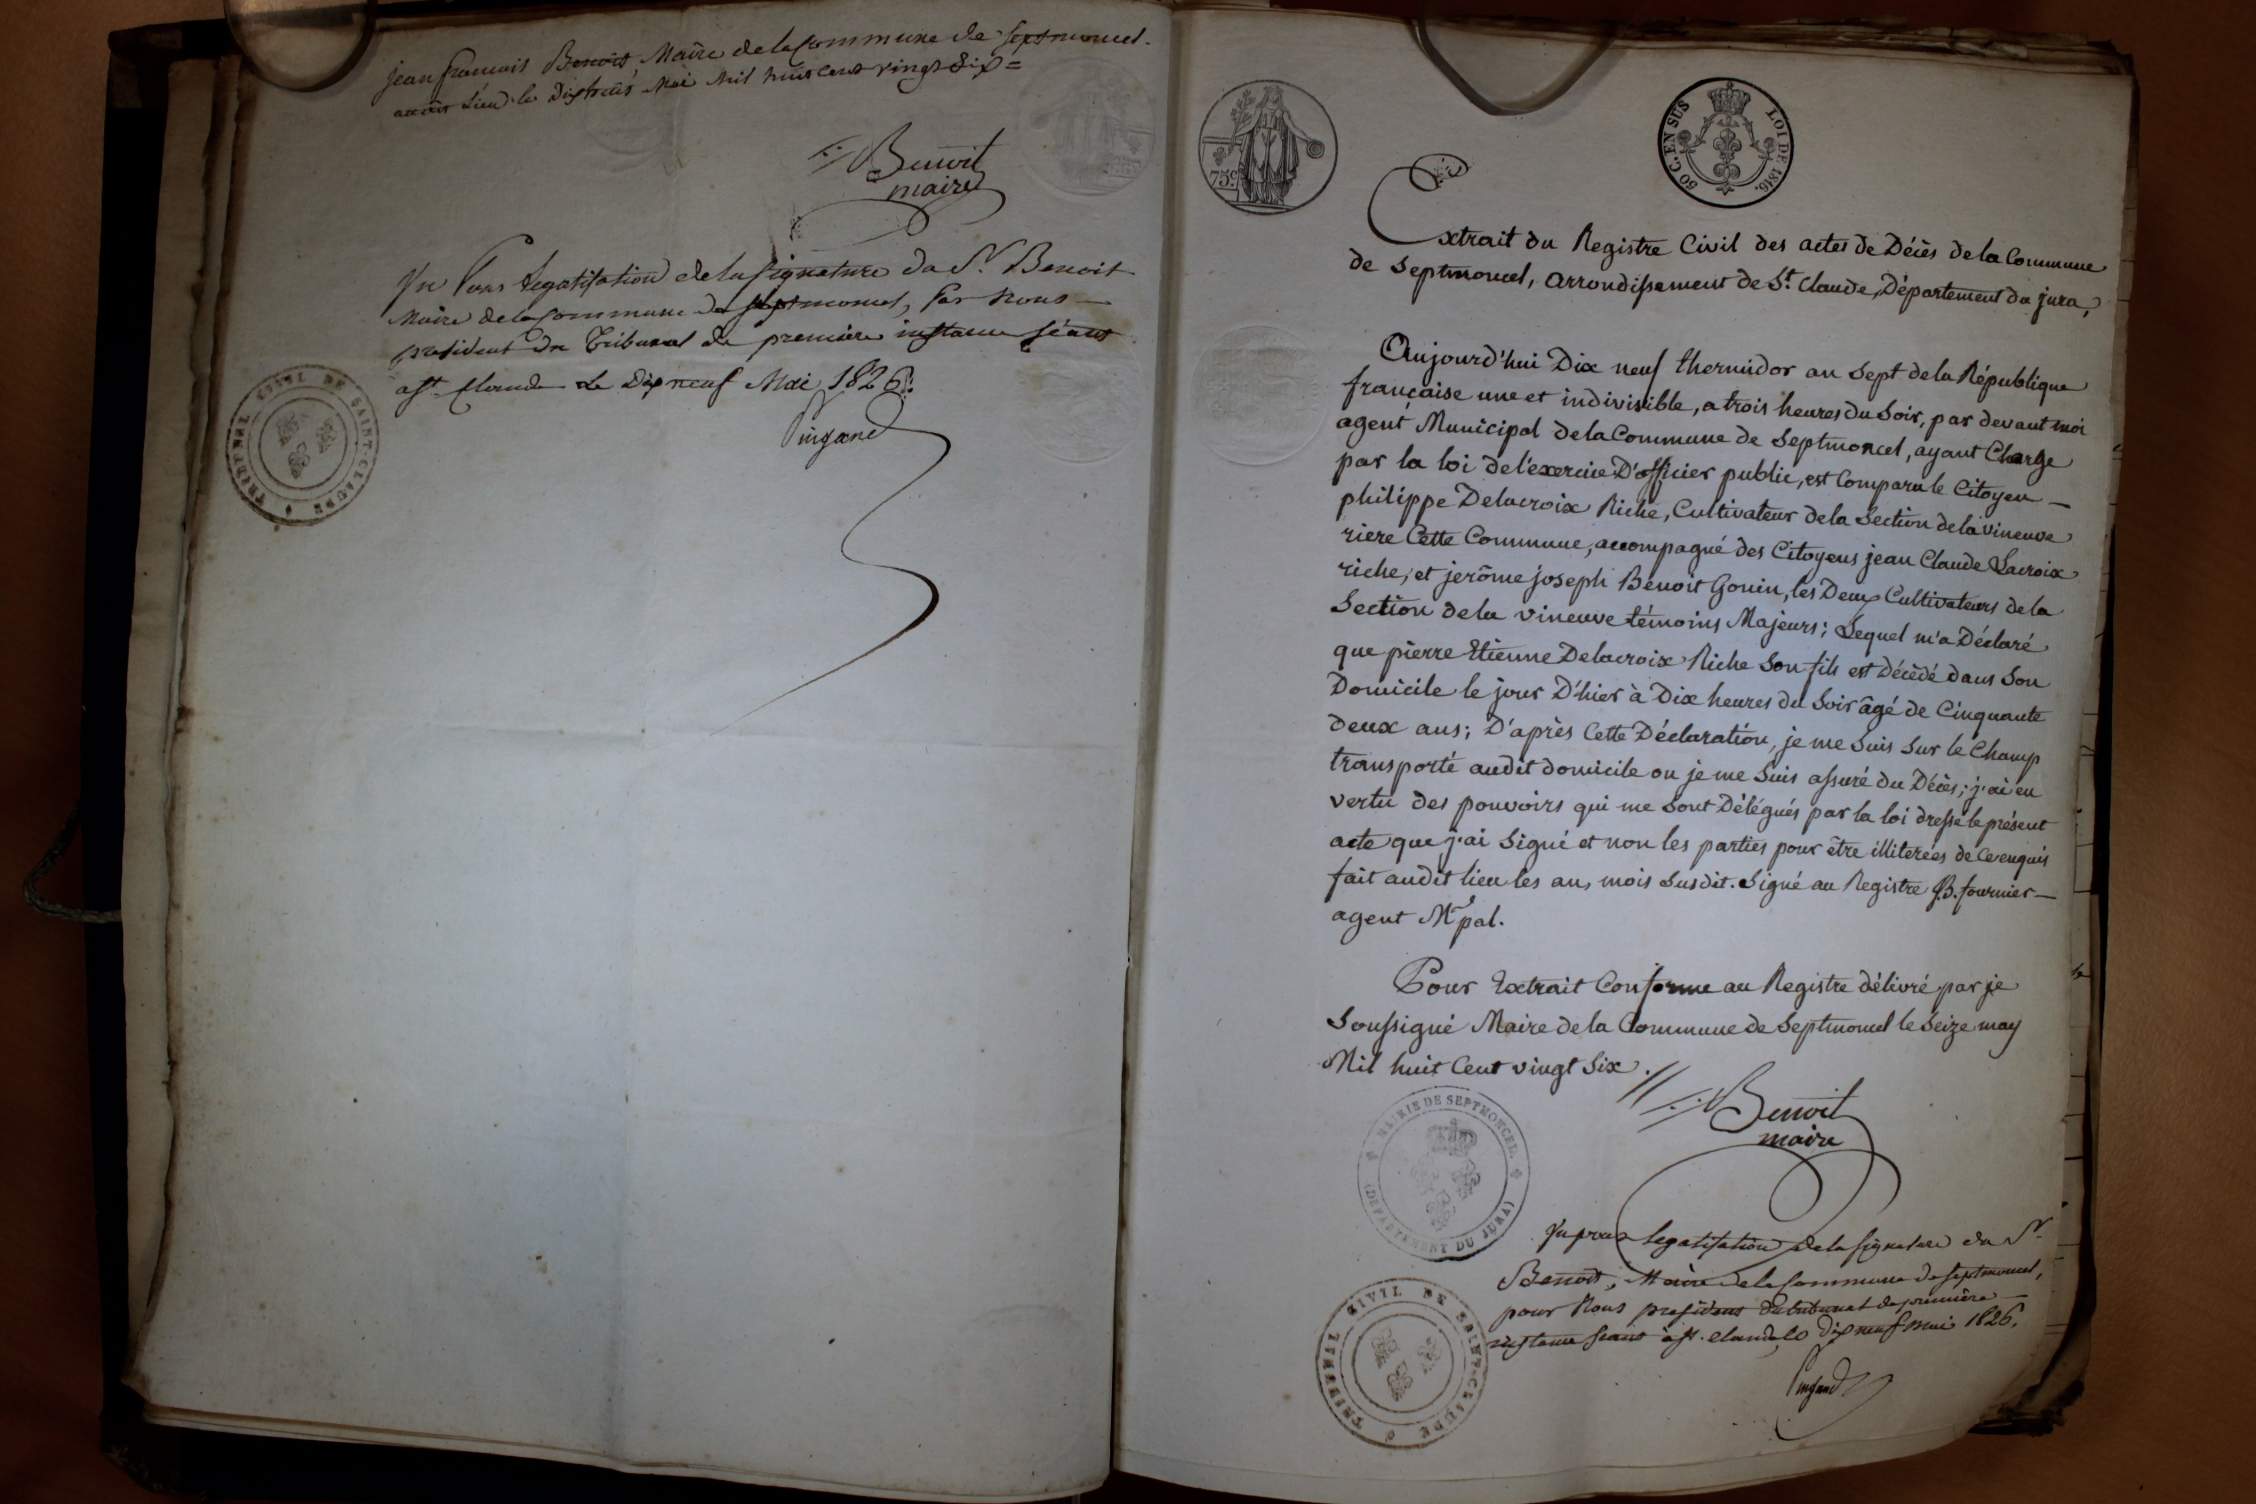 jean françois Benoit Maire de la Commune de Septmoncel.
audit lieu le Dixhuit Mai Mil huit cent vingt Six =
Benoit
maire
Vu Pour Legalisation de la signature du Sr. Benoit
Maire de la Commune de Septmoncel, par Nous
president du Tribunal de premiere instance séant
a St. Claude Le Dix neuf Mai 1826.
TRIBUNAL CIVIL DE SAINT-CLAUDE
75c.
50 C. EN SUS LOI DE 1816.
Extrait du Registre Civil des actes de Décès de la Commune
de Septmoncel, arrondissement de St. Claude, Département du jura,
Aujourd'hui Dix neuf thermidor an Sept de la République
française une et indivisible, a trois heures du Soir, par devant moi
agent Municipal de la Commune de Septmoncel, ayant Charge
par la loi de l'exercice D'officier public, est Comparu le Citoyen
philippe Delacroix Riche, Cultivateur de la Section de la vineuve
riere Cette Commune, accompagné des Citoyens jean Claude Lacroix
riche, et jerôme joseph Benoit Gonin, les Deux Cultivateurs de la
Section de la vineuve témoins Majeurs; Lequel m'a Déclaré
que pierre Etienne Delacroix Riche Son fils est Décédé dans Son
Domicile le jour D'hier à Dix heures du Soir âgé de Cinquante
deux ans; D'après Cette Déclaration, je me Suis Sur le Champ
transporté audit domicile ou je me Suis assuré du Décès; j'ai en
vertu des pouvoirs qui me Sont Délégués par la loi dressé le présent
acte que j'ai Signé et non les parties pour être illiterées de ce enquis
fait audit lieu les an, mois Susdit. Signé au Registre J.B. fournier
agent Mpal.
Pour Extrait Conforme au Registre délivré par je
Soussigné Maire de la Commune de Septmoncel le Seize may
Mil huit Cent vingt Six.
Benoit
maire
MAIRIE DE SEPTMONCEL
(DEPARTEMENT DU JURA)
Vu pour Legalisation de la signature du Sr.
Benoit, Maire de la Commune de Septmoncel,
pour Nous president du tribunal de première
instance séant à St. claude, le Dix neuf mai 1826.
TRIBUNAL CIVIL DE SAINT-CLAUDE